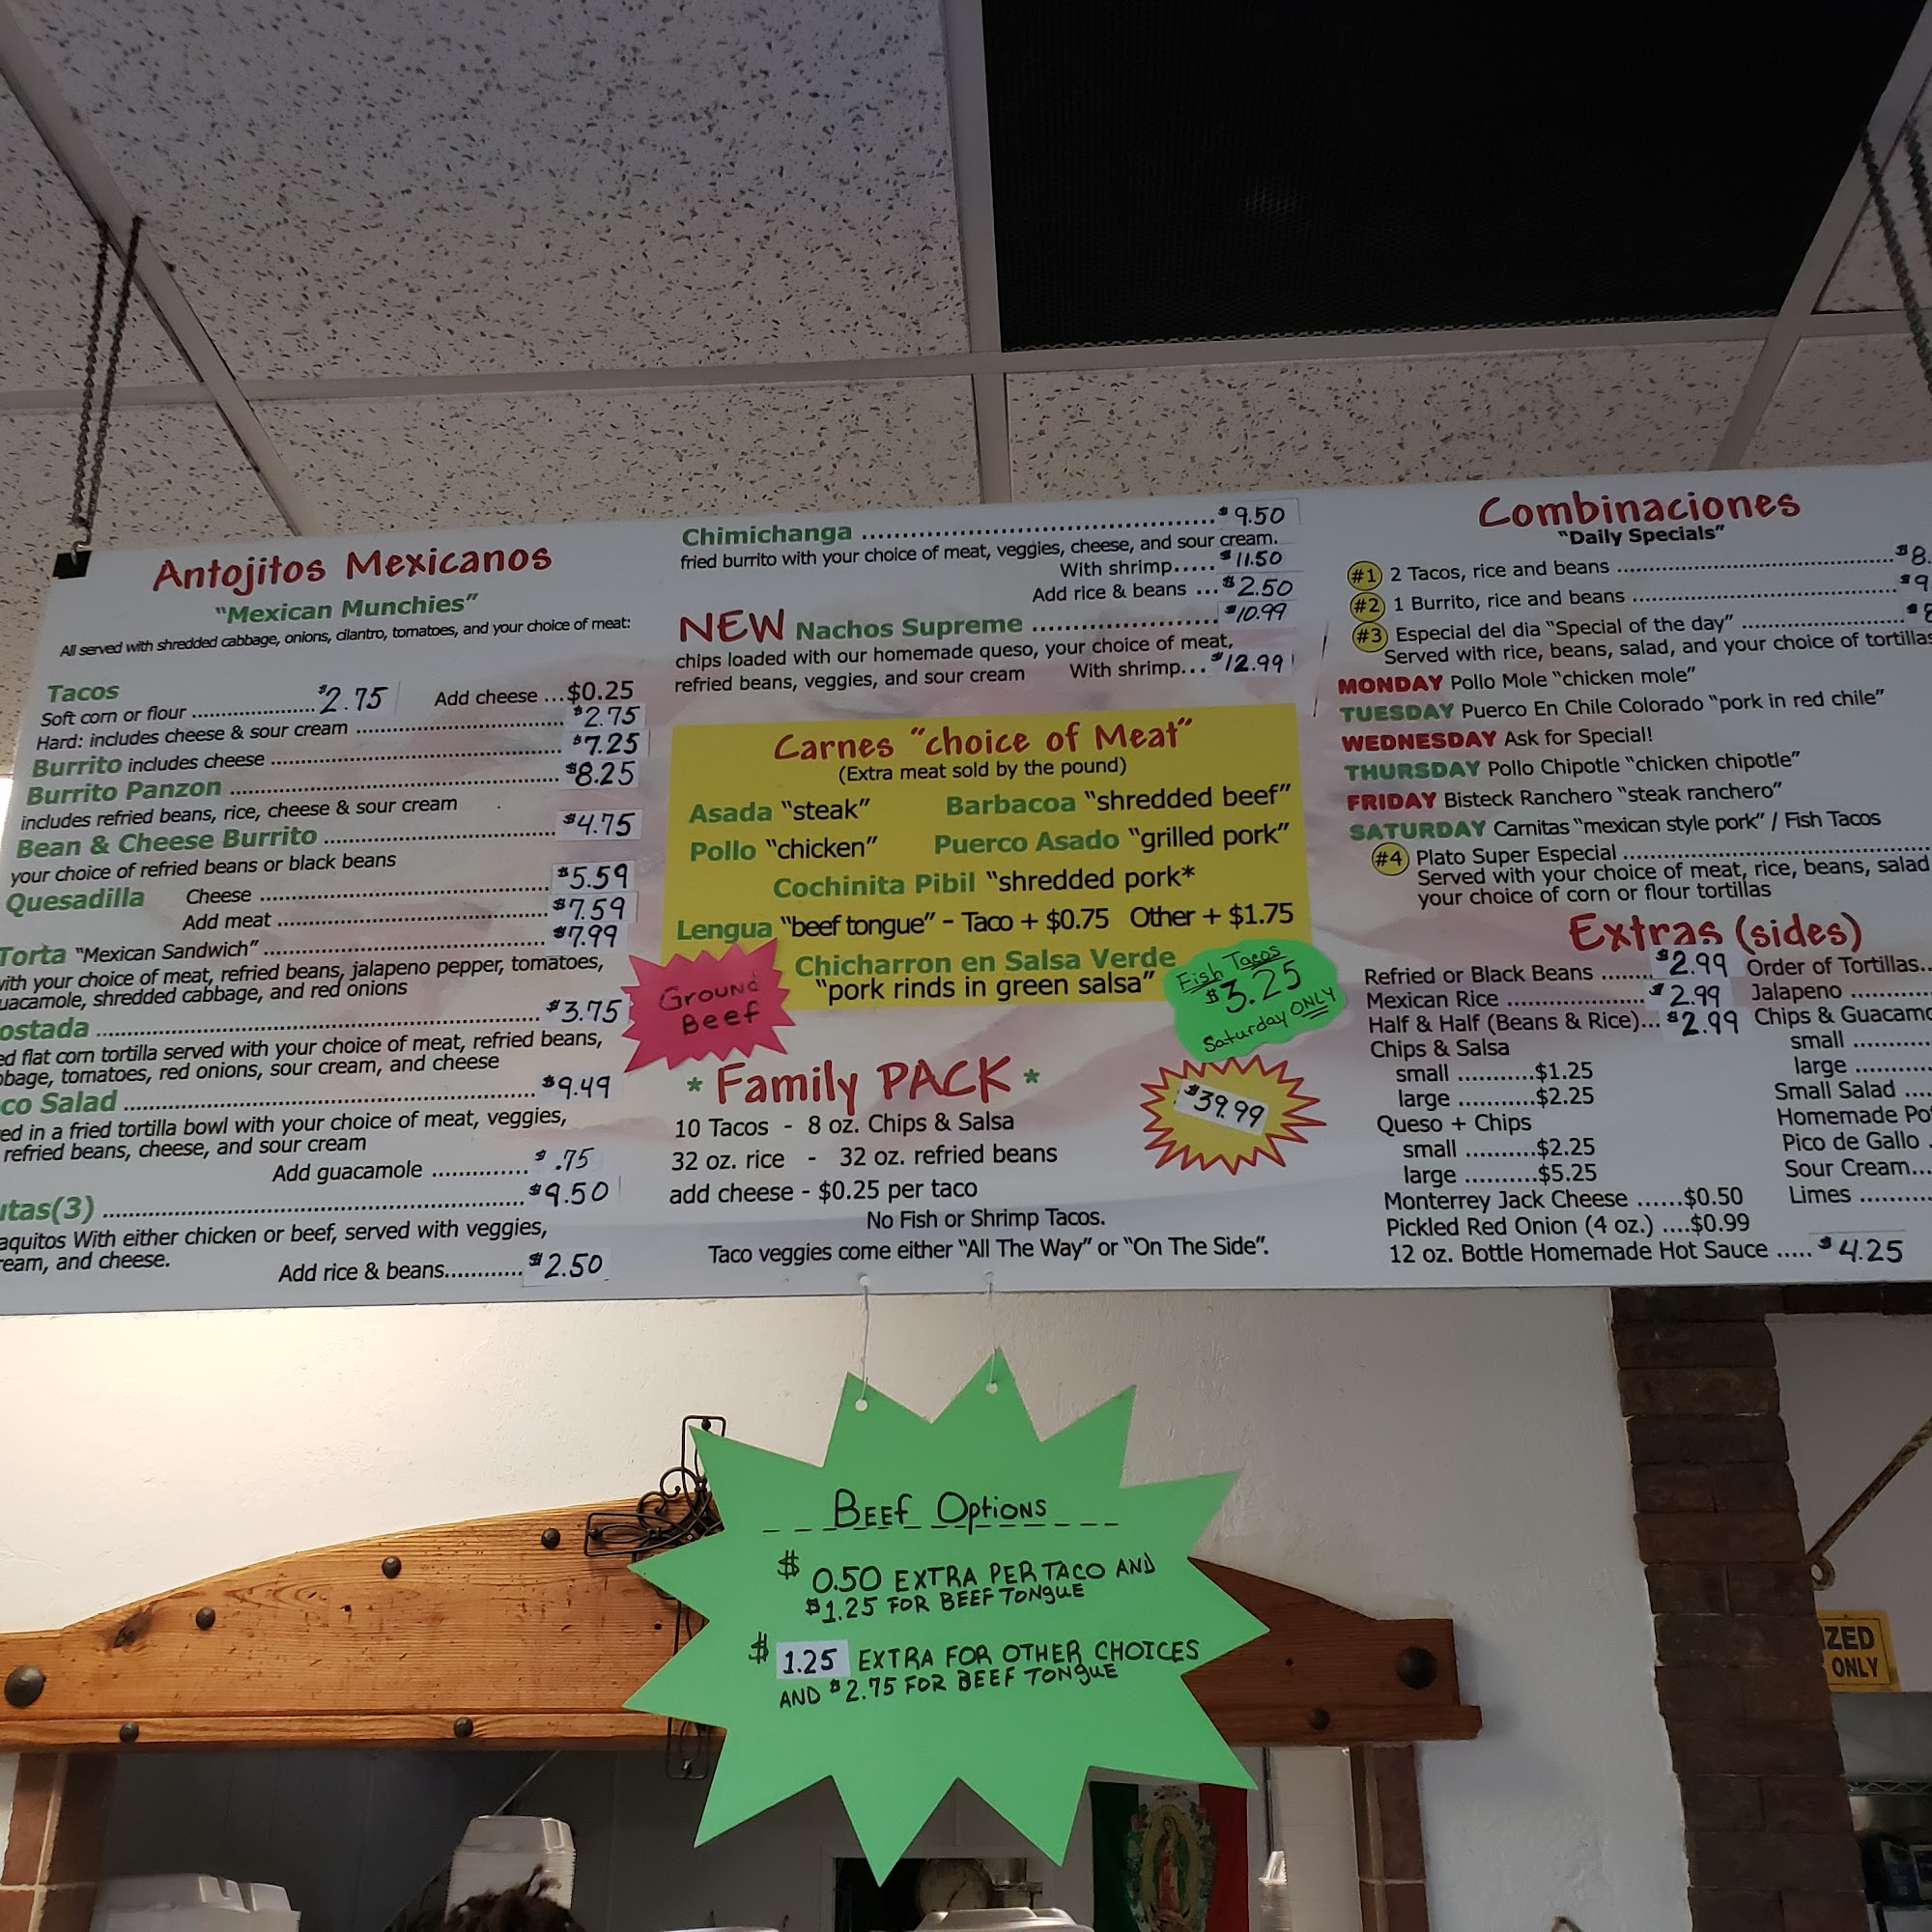 Antojitos Mexicanos
"Mexican Munchies"
All served with shredded cabbage, onions, cilantro, tomatoes, and your choice of meat:
Tacos
Soft corn or flour .................... $2.75 Add cheese ...$0.25
Hard: includes cheese & sour cream .................... $2.75
Burrito includes cheese .................... $7.25
Burrito Panzon .................... $8.25
includes refried beans, rice, cheese & sour cream
Bean & Cheese Burrito .................... $4.75
your choice of refried beans or black beans
Quesadilla Cheese .................... $5.59
Add meat .................... $7.59
Torta "Mexican Sandwich" .................... $7.99
with your choice of meat, refried beans, jalapeno pepper, tomatoes,
uacamole, shredded cabbage, and red onions
ostada .................... $3.75
ed flat corn tortilla served with your choice of meat, refried beans,
bbage, tomatoes, red onions, sour cream, and cheese
co Salad .................... $9.49
ed in a fried tortilla bowl with your choice of meat, veggies,
refried beans, cheese, and sour cream
Add guacamole .............. $.75
utas(3) .................... $9.50
aquitos With either chicken or beef, served with veggies,
ream, and cheese.
Add rice & beans............ $2.50
Chimichanga .................... $9.50
fried burrito with your choice of meat, veggies, cheese, and sour cream.
With shrimp..... $11.50
Add rice & beans ... $2.50
NEW Nachos Supreme .................... $10.99
chips loaded with our homemade queso, your choice of meat,
refried beans, veggies, and sour cream With shrimp... $12.99
Carnes "choice of Meat"
(Extra meat sold by the pound)
Asada "steak" Barbacoa "shredded beef"
Pollo "chicken" Puerco Asado "grilled pork"
Cochinita Pibil "shredded pork*
Lengua "beef tongue" - Taco + $0.75 Other + $1.75
Chicharron en Salsa Verde
"pork rinds in green salsa"
Ground
Beef
Fish Tacos
$3.25
Saturday ONLY
* Family PACK *
$39.99
10 Tacos - 8 oz. Chips & Salsa
32 oz. rice - 32 oz. refried beans
add cheese - $0.25 per taco
No Fish or Shrimp Tacos.
Taco veggies come either "All The Way" or "On The Side".
Combinaciones
"Daily Specials"
#1 2 Tacos, rice and beans .................... $8.
#2 1 Burrito, rice and beans .................... $9
#3 Especial del dia "Special of the day" .................... $8
Served with rice, beans, salad, and your choice of tortillas
MONDAY Pollo Mole "chicken mole"
TUESDAY Puerco En Chile Colorado "pork in red chile"
WEDNESDAY Ask for Special!
THURSDAY Pollo Chipotle "chicken chipotle"
FRIDAY Bisteck Ranchero "steak ranchero"
SATURDAY Carnitas "mexican style pork" / Fish Tacos
#4 Plato Super Especial ....................
Served with your choice of meat, rice, beans, salad
your choice of corn or flour tortillas
Extras (sides)
Refried or Black Beans ....... $2.99
Mexican Rice .................... $2.99
Half & Half (Beans & Rice)... $2.99
Chips & Salsa
small ...........$1.25
large ...........$2.25
Queso + Chips
small ..........$2.25
large ..........$5.25
Monterrey Jack Cheese ......$0.50
Pickled Red Onion (4 oz.) ....$0.99
12 oz. Bottle Homemade Hot Sauce ..... $4.25
Order of Tortillas..
Jalapeno ..........
Chips & Guacamo
small ..........
large ..........
Small Salad ....
Homemade Po
Pico de Gallo .
Sour Cream...
Limes .........
Beef Options
$0.50 EXTRA PER TACO AND
$1.25 FOR BEEF TONGUE
$1.25 EXTRA FOR OTHER CHOICES
AND $2.75 FOR BEEF TONGUE
IZED
ONLY